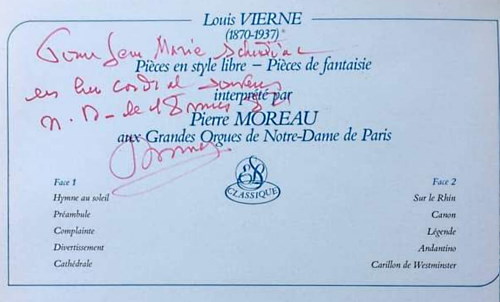 Louis VIERNE
(1870-1937)
Pour Jean Marie
Pièces en style libre – Pièces de fantaisie
en cordial souvenir
interprété par
N. D. de
Pierre MOREAU
aux Grandes Orgues de Notre-Dame de Paris
CLASSIQUE
Face 1
Hymne au soleil
Préambule
Complainte
Divertissement
Cathédrale
Face 2
Sur le Rhin
Canon
Légende
Andantino
Carillon de Westminster